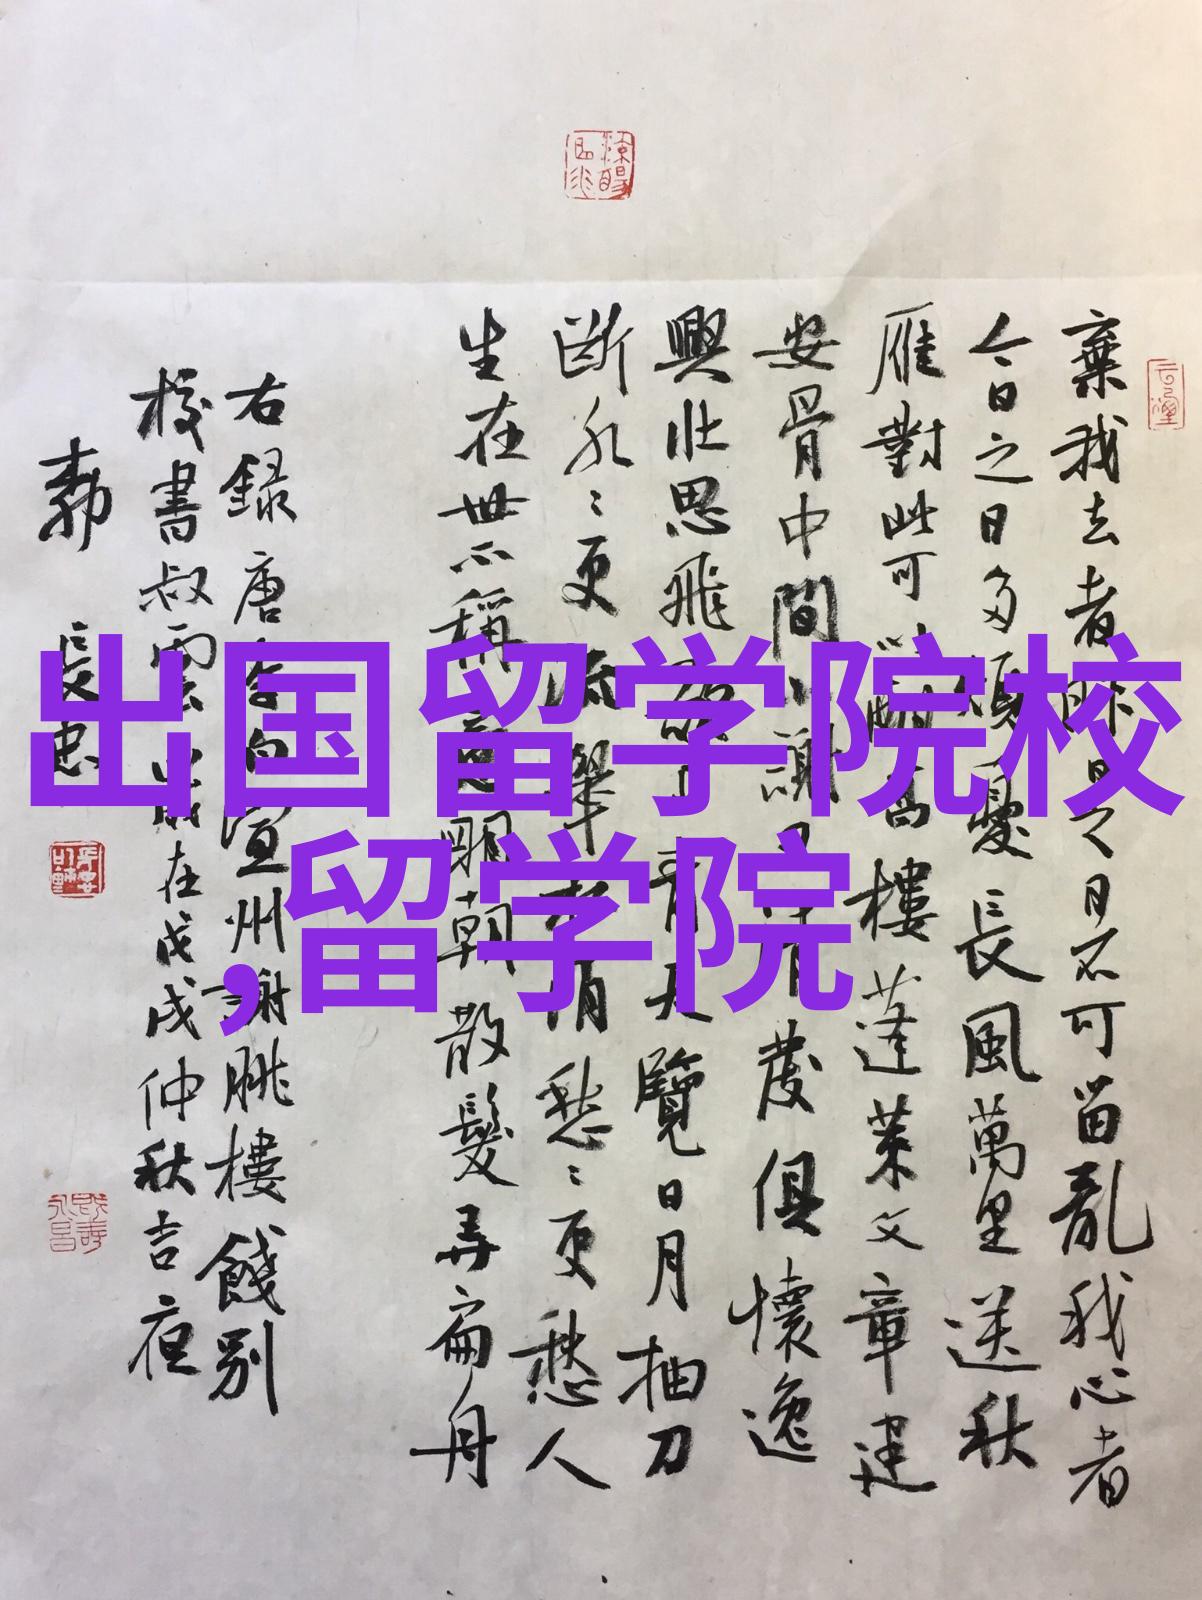 出国留学院校
,留学院
棄我去者昨日之日不可留亂我心者
今日之日多煩憂長風萬里送秋
雁對此可以酣高樓蓬萊文章建
安骨中間小謝又清發俱懷逸
興壯思飛欲上青天覽日月抽刀
斷水〻更流舉杯消愁〻更愁人
生在世不稱意明朝散髮弄扁舟
右録唐李白宣州謝朓樓餞別
校書叔雲歲在戊戌仲秋吉夜
長忠